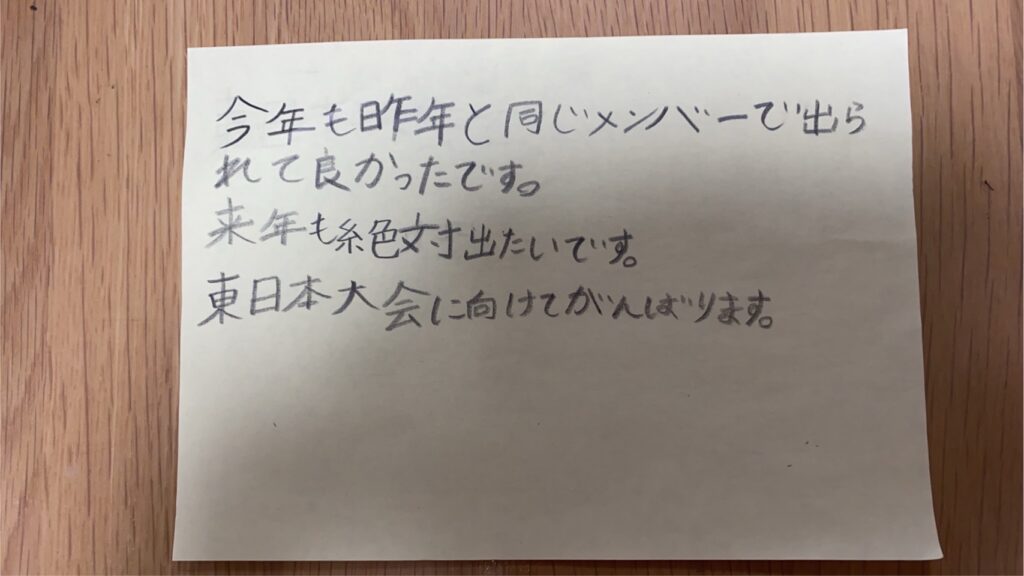 今年も昨年と同じメンバーで出ら
れて良かったです。
来年も絶対出たいです。
東日本大会に向けてがんばります。